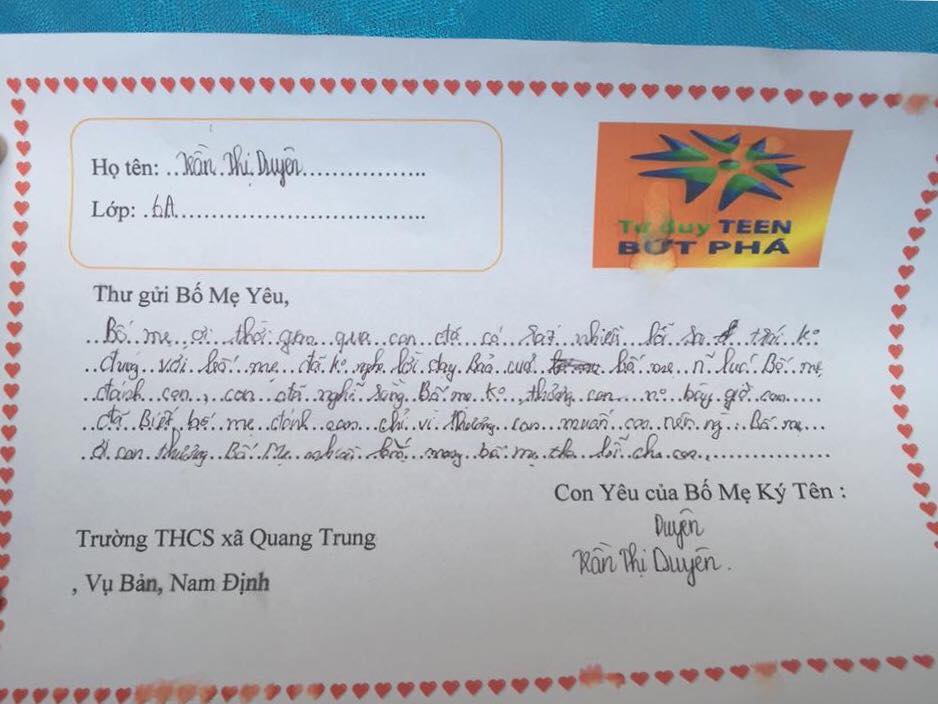 Họ tên: Trần Thị Duyên
Lớp: 6A
Tư duy TEEN
BỨT PHÁ
Thư gửi Bố Mẹ Yêu,
Bố mẹ ơi thời gian qua con đã có rất nhiều lỗi thái ko
đúng với bố mẹ đã ko nghe lời dạy Bảo của bố mẹ n~ lúc Bố mẹ
đánh con, con đã nghĩ rằng Bố mẹ ko thương con bây giờ con
đã Biết bố mẹ đánh con chỉ vì thương con muốn con nên ng. Bố mẹ
ơi con thương Bố Mẹ nhiều mong bố mẹ tha lỗi cho con,
Con Yêu của Bố Mẹ Ký Tên :
Duyên
Trần Thị Duyên.
Trường THCS xã Quang Trung
, Vụ Bản, Nam Định